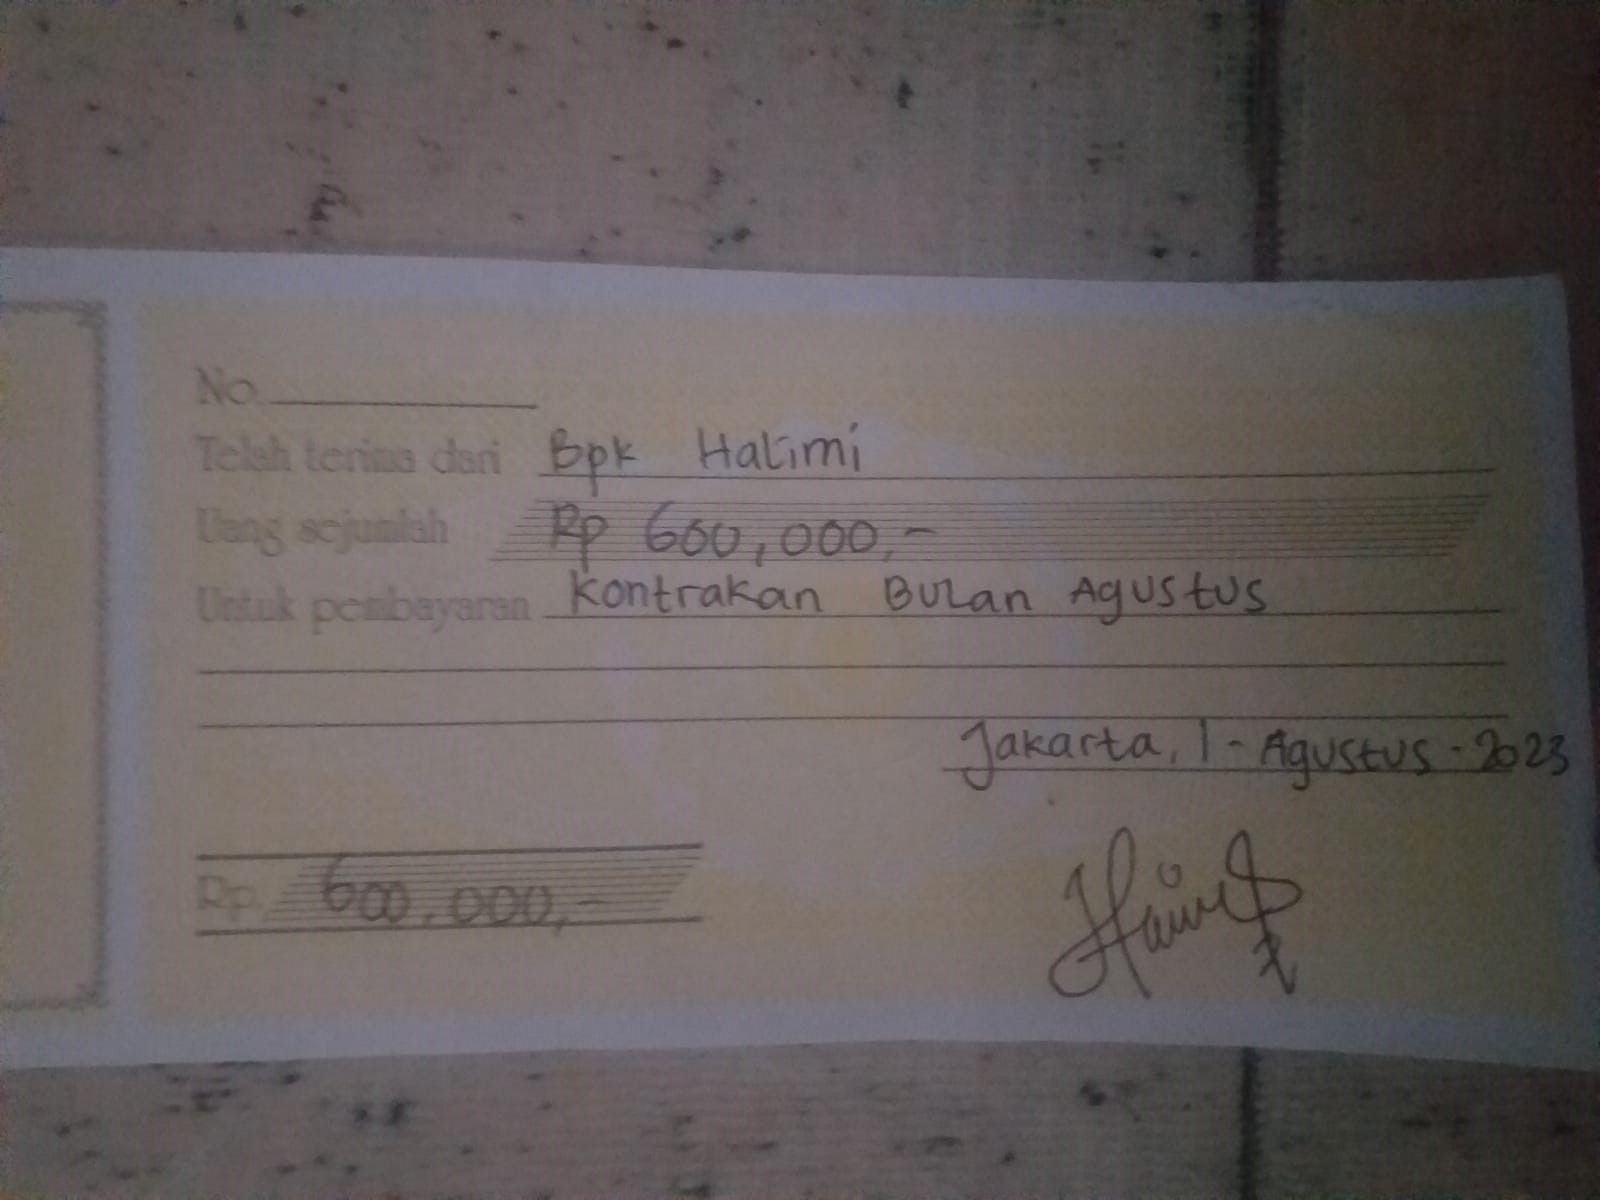 No.
Telah terima dari Bpk Halimi
Uang sejumlah Rp 600,000,-
Untuk pembayaran Kontrakan Bulan Agustus
Jakarta, 1 - Agustus - 2023
Rp. 600.000,-